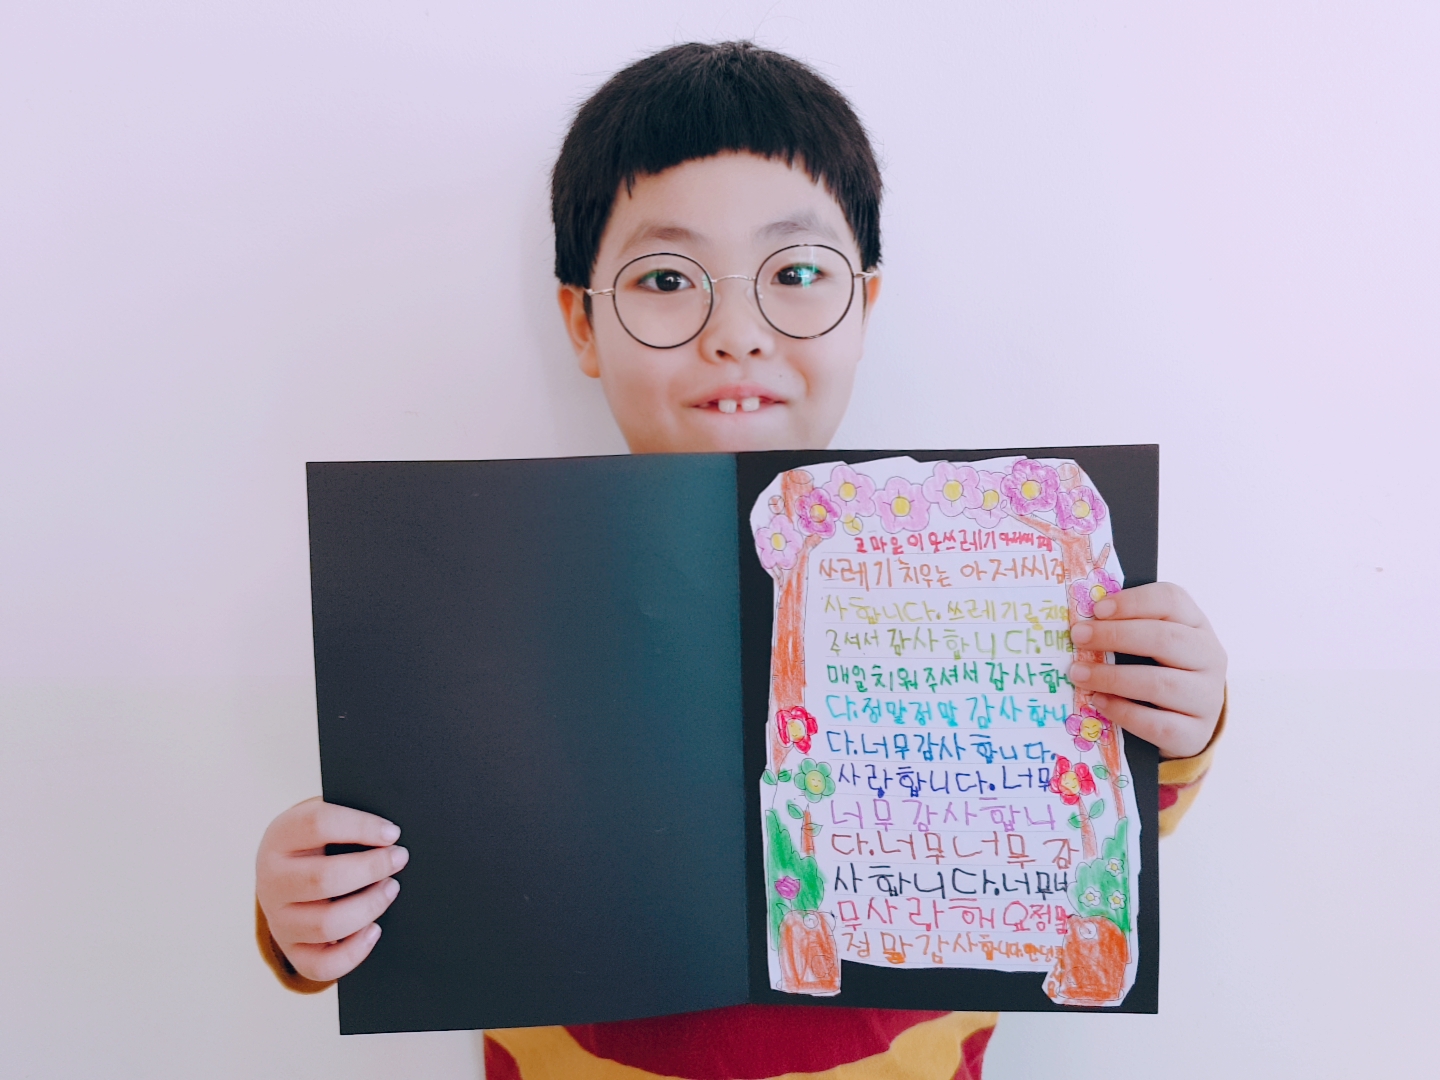 쓰레기
쓰레기 치우는 아저씨 감
사합니다. 쓰레기를 치워
주셔서 감사합니다. 매일
매일 치워주셔서 감사합니
다. 정말 정말 감사합니
다. 너무 감사합니다.
사랑합니다. 너무
너무 감사합니
다. 너무 너무 감
사합니다. 너무너
무 사랑해요 정말
정말 감사합니다.